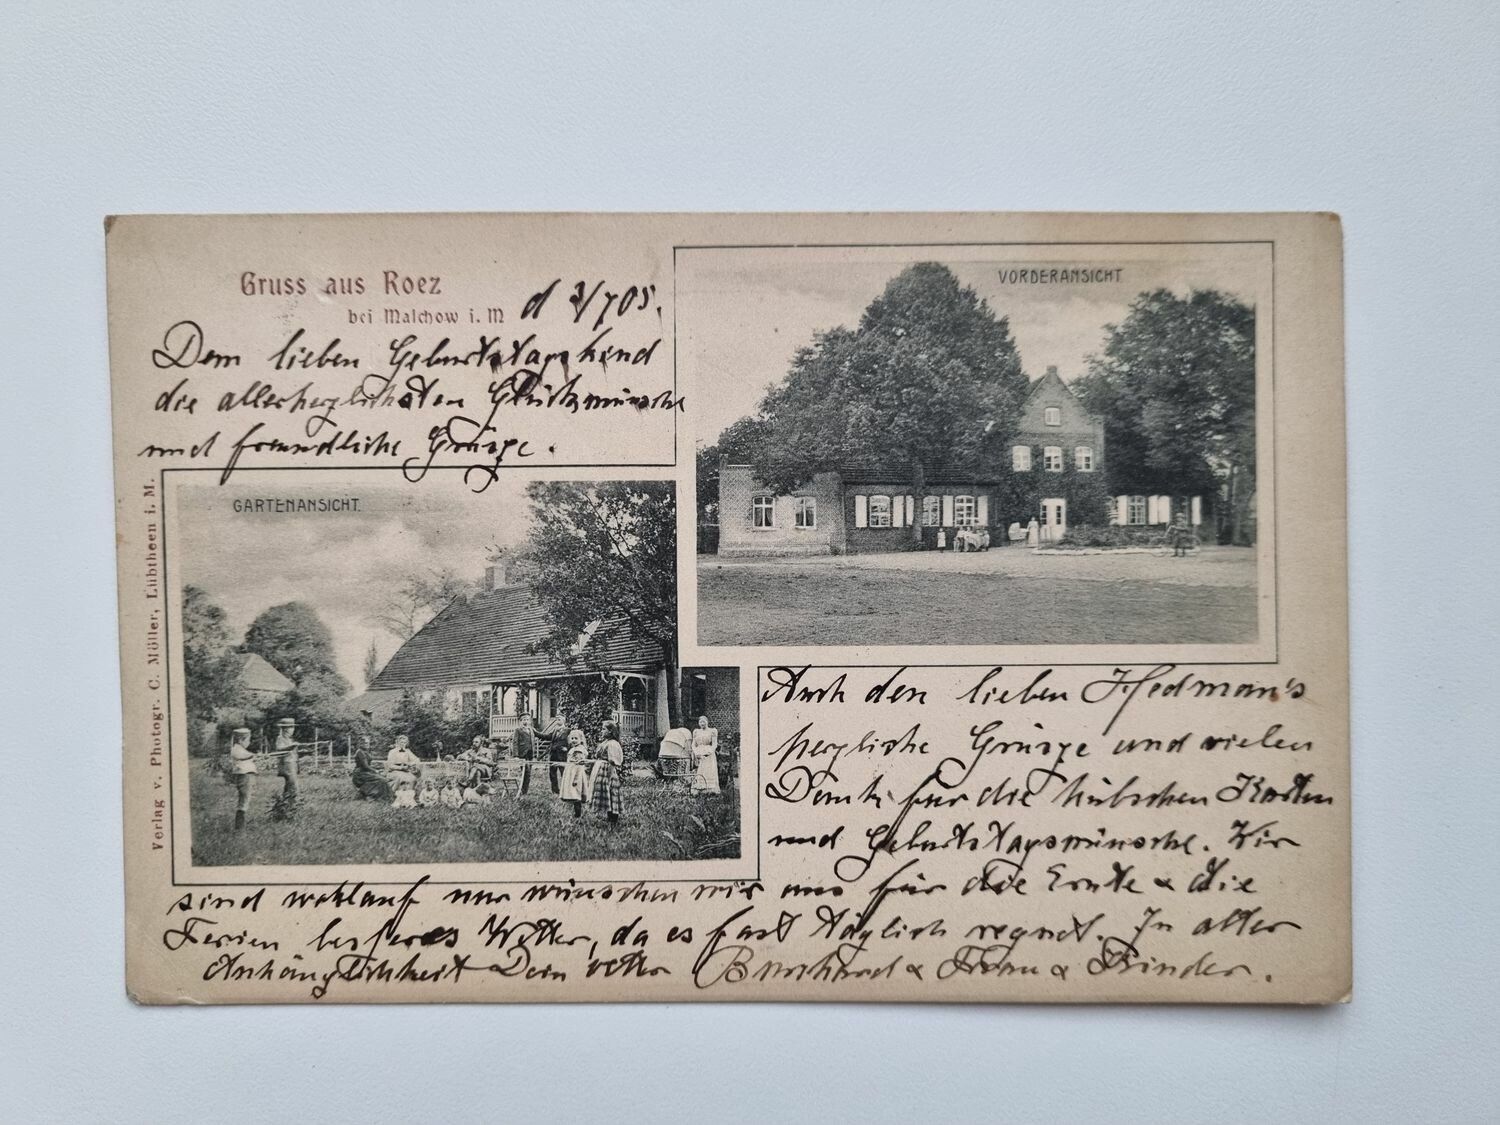 Gruss aus Roez
bei Malchow i. M
d 3/7 05.
Dem lieben Geburtstagskind
die allerherzlichsten Glückwünsche
und freundliche Grüsze.
VORDERANSICHT
GARTENANSICHT.
Verlag v. Photogr. C. Möller, Lübtheen i. M.
Auch den lieben
herzliche Grüsze und vielen
Dank für die hübschen Karten
und Geburtstagswünsche. Wir
sind wohlauf nur wünschen wir uns für die Ernte & die
Ferien besseres Wetter, da es fast täglich regnet. In alter
Anhänglichkeit Dein Vetter Burchard & Frau & Kinder.